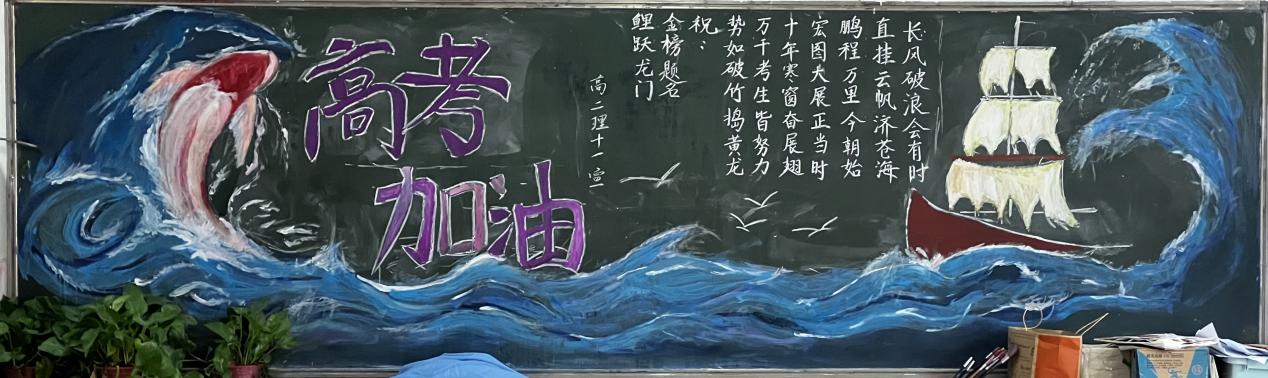 高考
加油
长风破浪会有时
直挂云帆济苍海
鹏程万里今朝始
宏图大展正当时
十年寒窗奋展翅
万千考生皆努力
势如破竹捣黄龙
祝：
金榜题名
鲤跃龙门
高二理十一宣